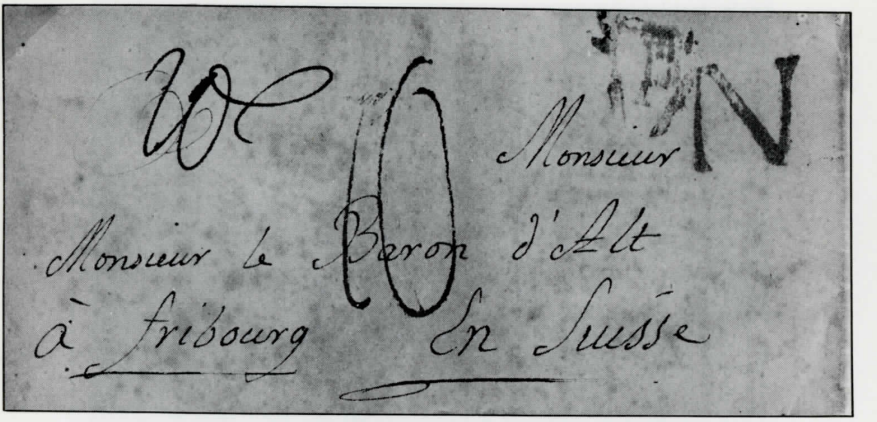 N
Monsieur
Monsieur le Baron d'Alt
à fribourg En Suisse